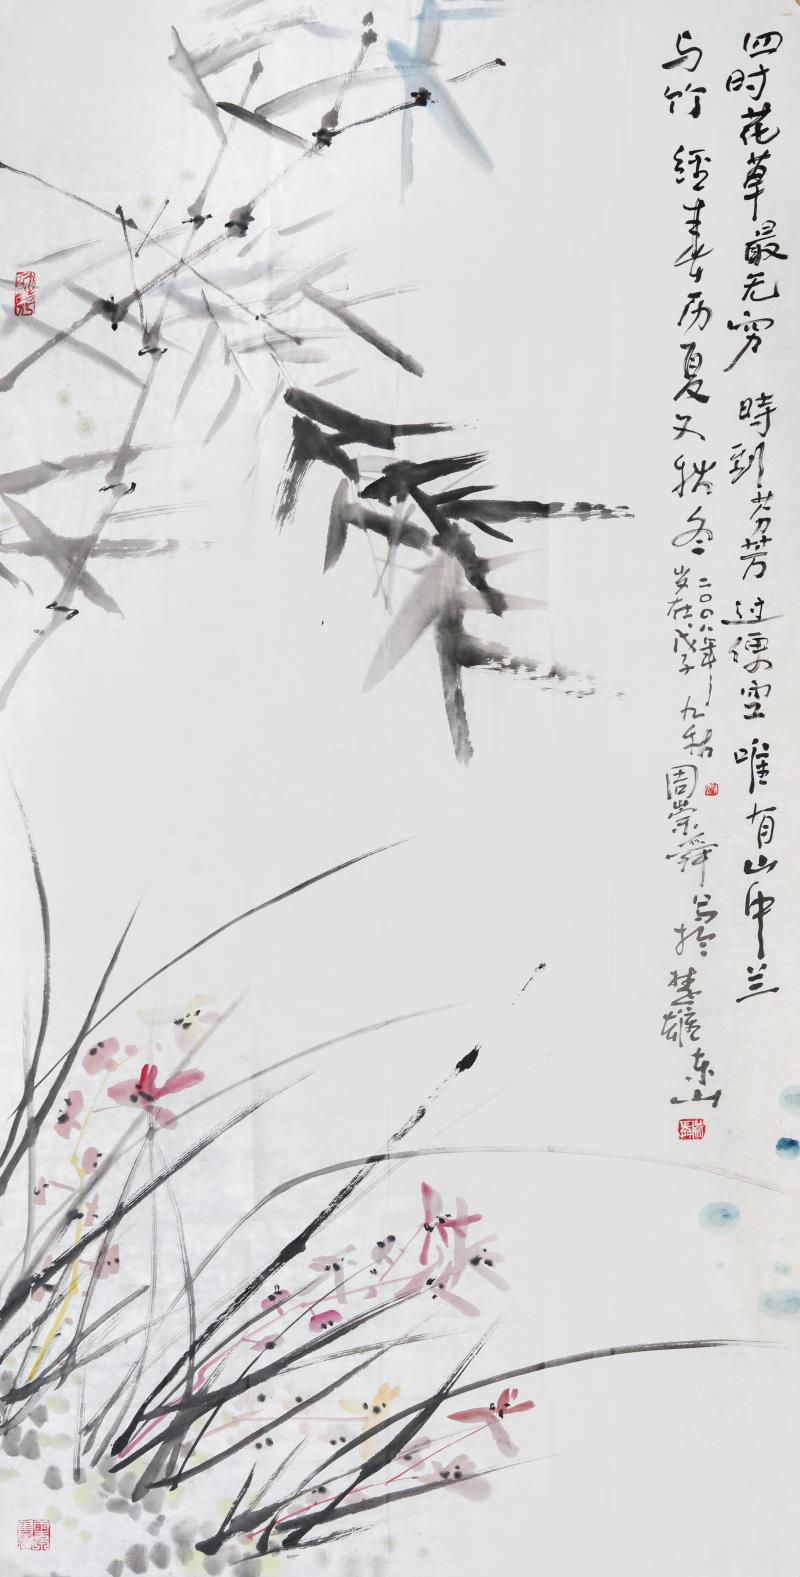 四时花草最无穷 時到芬芳过便空 唯有山中兰
与竹 經春历夏又秋冬
二〇〇八年
岁在戊子 九秋 周崇舜 写於楚雄东山